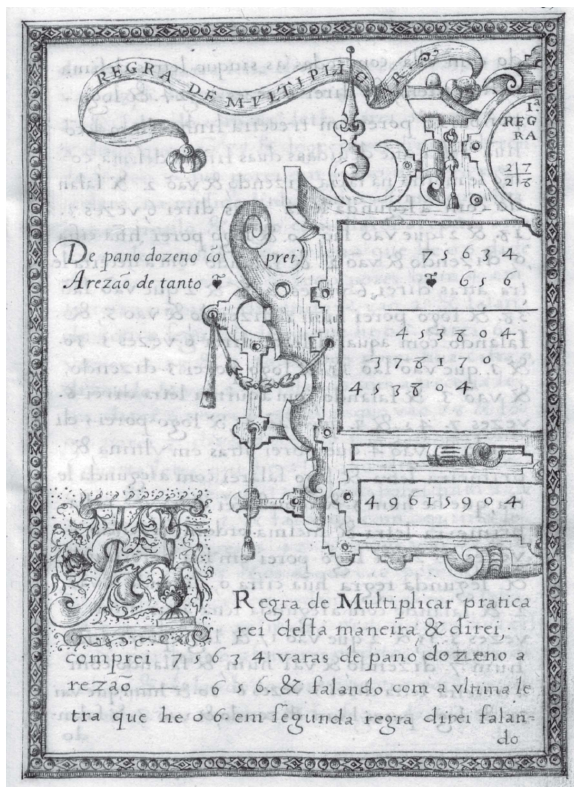 REGRA DE MVLTIPLICAR
Iª
REGRA
2 7
2 8
De pano dozeno cõ prei 7 5 6 3 4
Arezaõ de tanto 6 5 6
4 5 3 8 0 4
3 7 8 1 7 0
4 5 3 8 0 4
4 9 6 1 5 9 0 4
A Regra de Multiplicar pratica
rei desta maneira & direi,
comprei 7 5 6 3 4. varas de pano dozeno a
rezaõ 6 5 6. & falando com a vltima le
tra que he o 6. em segunda regra direi falan-
do